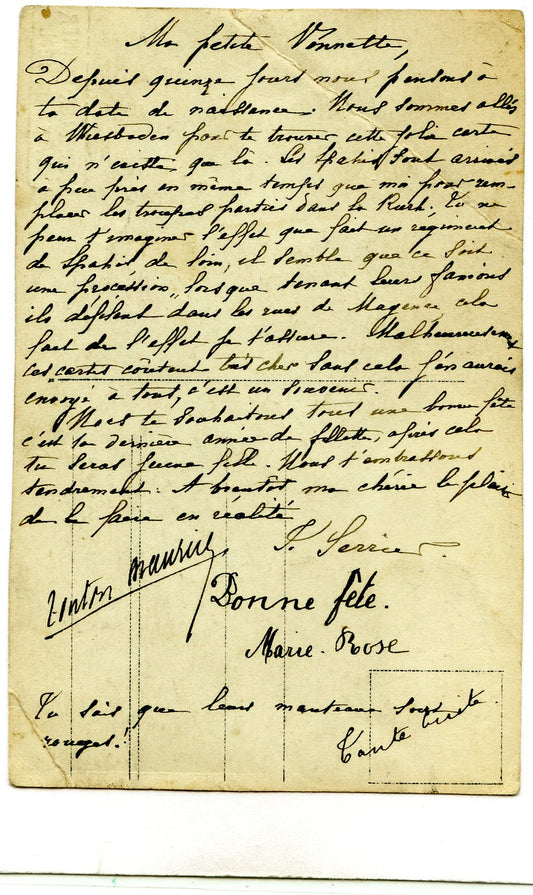 Ma petite Vonnette,
Depuis quinze jours nous pensons à
ta date de naissance. Nous sommes allés
à Wiesbaden pour te trouver cette jolie carte
qui n'existe que là. Les Spahis sont arrivés
à peu près en même temps que moi pour rem-
placer les troupes parties dans la Ruhr. Tu ne
peux t'imaginer l'effet que fait un régiment
de Spahis de loin, il semble que ce soit
une procession, lorsque tenant leurs fanions
ils défilent dans les rues de Mayence cela
fait de l'effet je t'assure. Malheureusement
ces cartes coûtent très cher sans cela j'en aurais
envoyé à tous, c'est un souvenir.
Nous te souhaitons tous une bonne fête
c'est ta dernière année de fillette, après cela
tu seras jeune fille. Nous t'embrassons
tendrement. A bientôt ma chérie le plaisir
de le faire en réalité
Tonton Maurice
Bonne fête.
Marie-Rose
Tu sais que leurs manteaux sont
rouges!
Tante